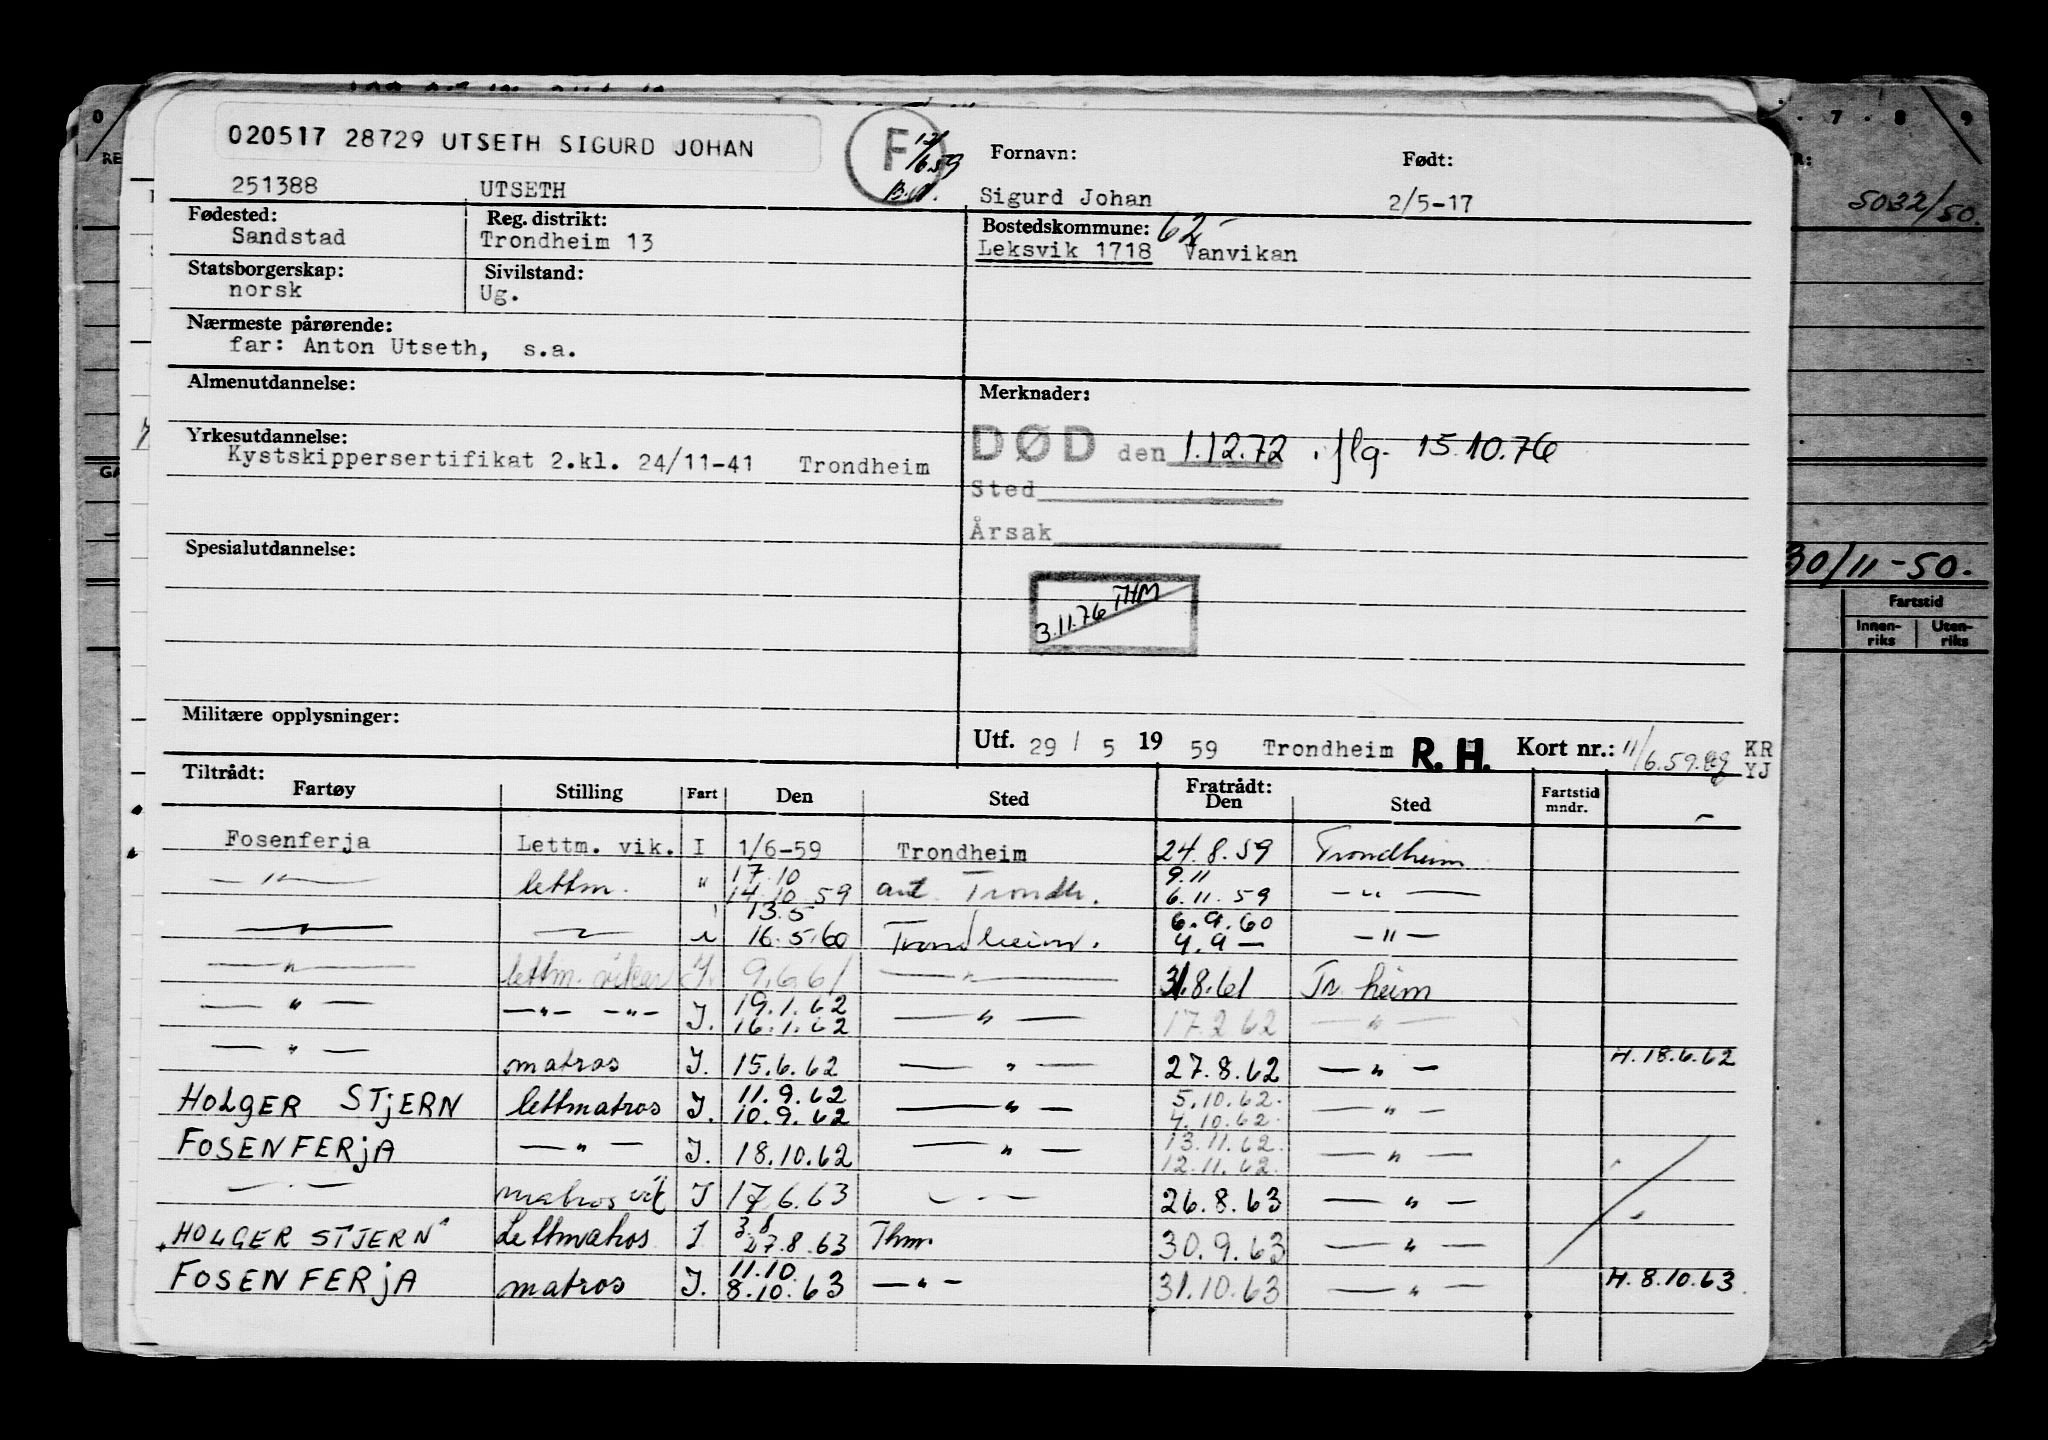 020517 28729 UTSETH SIGURD JOHAN
F
6.59
Fornavn: Født:
251388 UTSETH Sigurd Johan 2/5-17
Fødested: Reg. distrikt: Bostedskommune: 62
Sandstad Trondheim 13 Leksvik 1718 Vanvikan
Statsborgerskap: Sivilstand:
norsk Ug.
Nærmeste pårørende:
far: Anton Utseth, s.a.
Almenutdannelse: Merknader:
Yrkesutdannelse: DØD den 1.12.72 iflg. 15.10.76
Kystskippersertifikat 2.kl. 24/11-41 Trondheim
Sted
Årsak
Spesialutdannelse:
3.11.76 THM
Militære opplysninger:
Utf. 29/ 5 19 59 Trondheim R. H. Kort nr.: 11/6.59. KR
YJ
Tiltrådt: Fratrådt:
Fartøy Stilling Fart Den Sted Den Sted Fartstid mndr.
Fosenferja Lettm. vik. I 1/6-59 Trondheim 24.8.59 Trondheim
17.10 9.11
— " — lettm. " 14.10.59 Trondh. 6.11.59 — " —
13.5 6.9.60
— " — — " — " 16.5.60 Trondheim. 4.9 — — " —
— " — lettm. vikar I. 9.6.61 — " — 31.8.61 Tr.heim
19.1.62
— " — — " — — " — I. 16.1.62 — " — 17.2.62 — " —
— " — matros I. 15.6.62 — " — 27.8.62 — " — H. 18.6.62
11.9.62 5.10.62.
HOLGER STjERN lettmatros I. 10.9.62 — " — 4.10.62. — " —
13.11.62.
FOSENFERjA — " — I. 18.10.62 — " — 12.11.62. — " —
— " — matros vik I 17.6.63 — " — 26.8.63 — " —
"HOLGER STJERN" Lettmatros I 27.8.63 Thm. 30.9.63 — " —
11.10.
FOSENFERjA matros I. 8.10.63 — " — 31.10.63 — " — H. 8.10.63.
0
RE
GA
7 . 8 9
R:
5032/50.
30/11-50.
Fartstid
Innen-riks Uten-riks